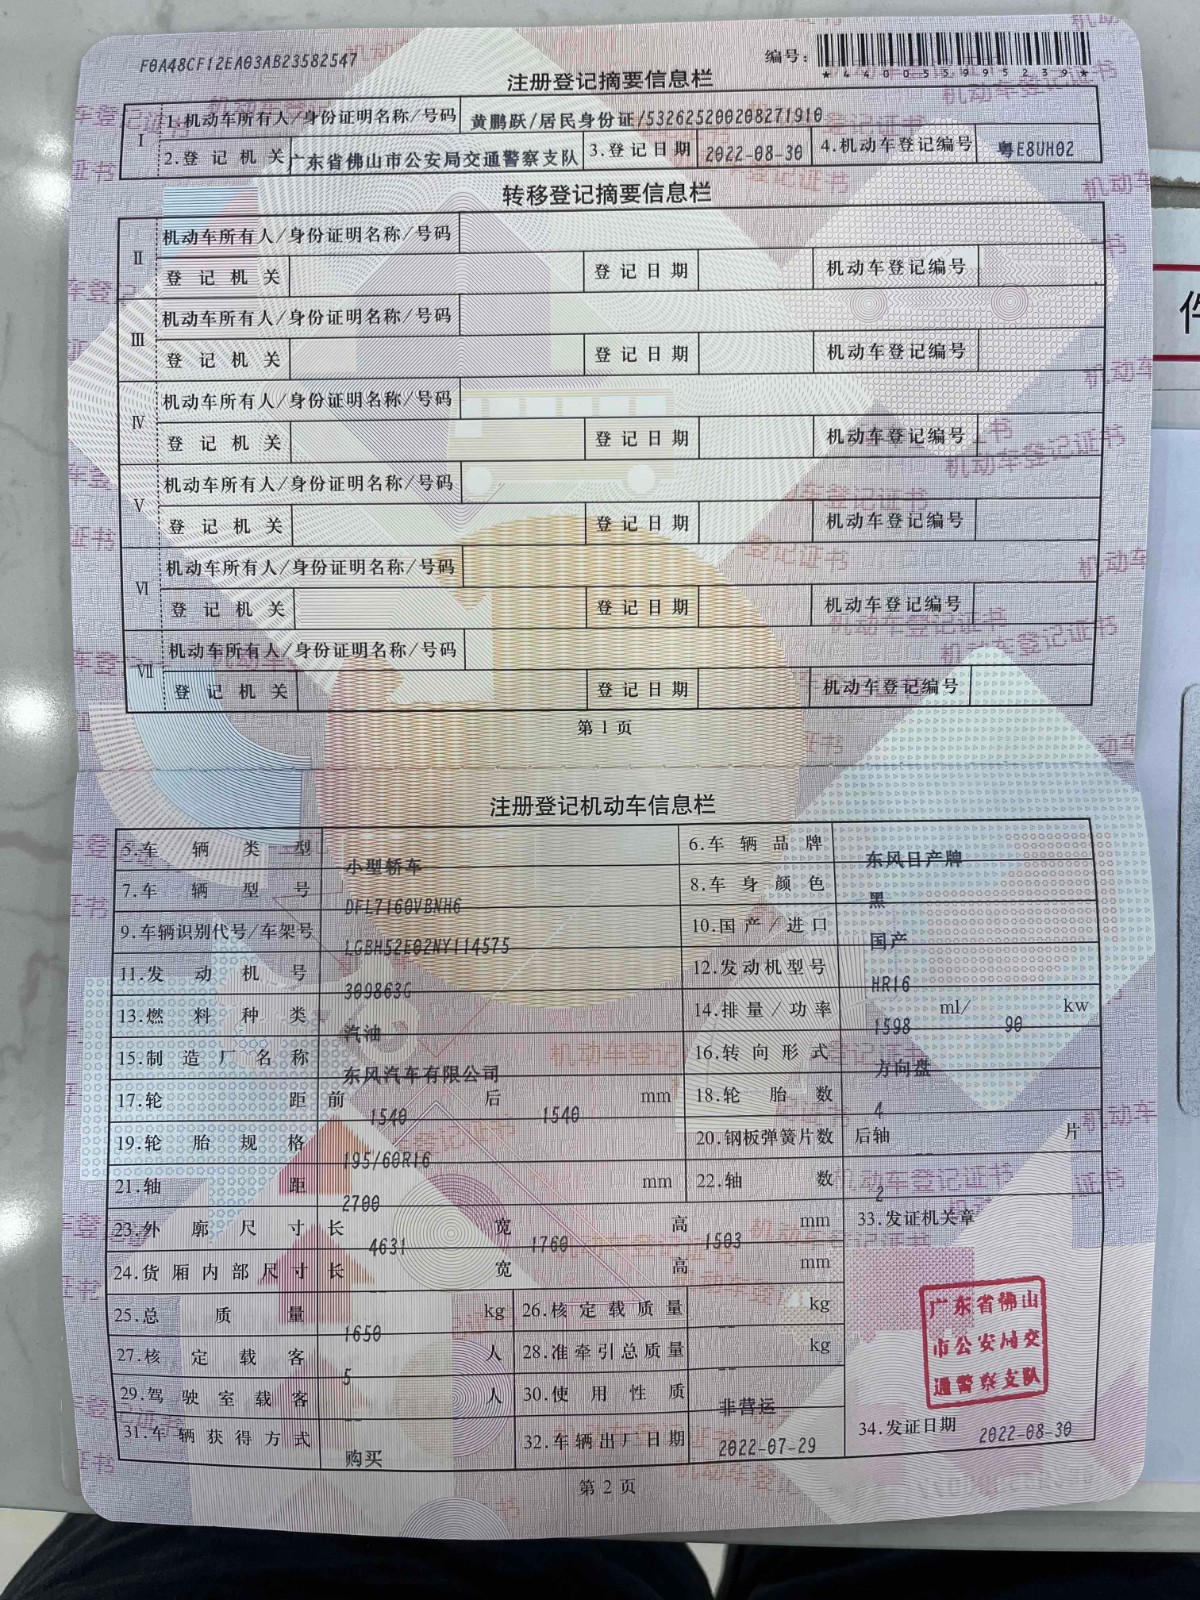 F0A48CF12EA03AB23582547
编号：
*440055995239*
注册登记摘要信息栏
I
1.机动车所有人/身份证明名称/号码 黄鹏跃/居民身份证/532625200208271910
2.登记机关 广东省佛山市公安局交通警察支队 3.登记日期 2022-08-30 4.机动车登记编号 粤E8UH02
转移登记摘要信息栏
II
机动车所有人/身份证明名称/号码
登记机关 登记日期 机动车登记编号
III
机动车所有人/身份证明名称/号码
登记机关 登记日期 机动车登记编号
IV
机动车所有人/身份证明名称/号码
登记机关 登记日期 机动车登记编号
V
机动车所有人/身份证明名称/号码
登记机关 登记日期 机动车登记编号
VI
机动车所有人/身份证明名称/号码
登记机关 登记日期 机动车登记编号
VII
机动车所有人/身份证明名称/号码
登记机关 登记日期 机动车登记编号
第1页
注册登记机动车信息栏
5.车辆类型 小型轿车 6.车辆品牌 东风日产牌
7.车辆型号 DFL7160VBNH6 8.车身颜色 黑
9.车辆识别代号/车架号 LGBH52E02NY114575 10.国产/进口 国产
11.发动机号 309863G 12.发动机型号 HR16
13.燃料种类 汽油 14.排量/功率 1598 ml/ 90 kw
15.制造厂名称 东风汽车有限公司 16.转向形式 方向盘
17.轮距 前 1540 后 1540 mm 18.轮胎数 4
19.轮胎规格 195/60R16 20.钢板弹簧片数 后轴 -- 片
21.轴距 2700 mm 22.轴数 2
23.外廓尺寸 长 4631 宽 1760 高 1503 mm 33.发证机关章
24.货厢内部尺寸 长 -- 宽 高 mm
25.总质量 1650 kg 26.核定载质量 -- kg
27.核定载客 5 人 28.准牵引总质量 -- kg
29.驾驶室载客 -- 人 30.使用性质 非营运
31.车辆获得方式 购买 32.车辆出厂日期 2022-07-29 34.发证日期 2022-08-30
广东省佛山
市公安局交
通警察支队
第2页
件